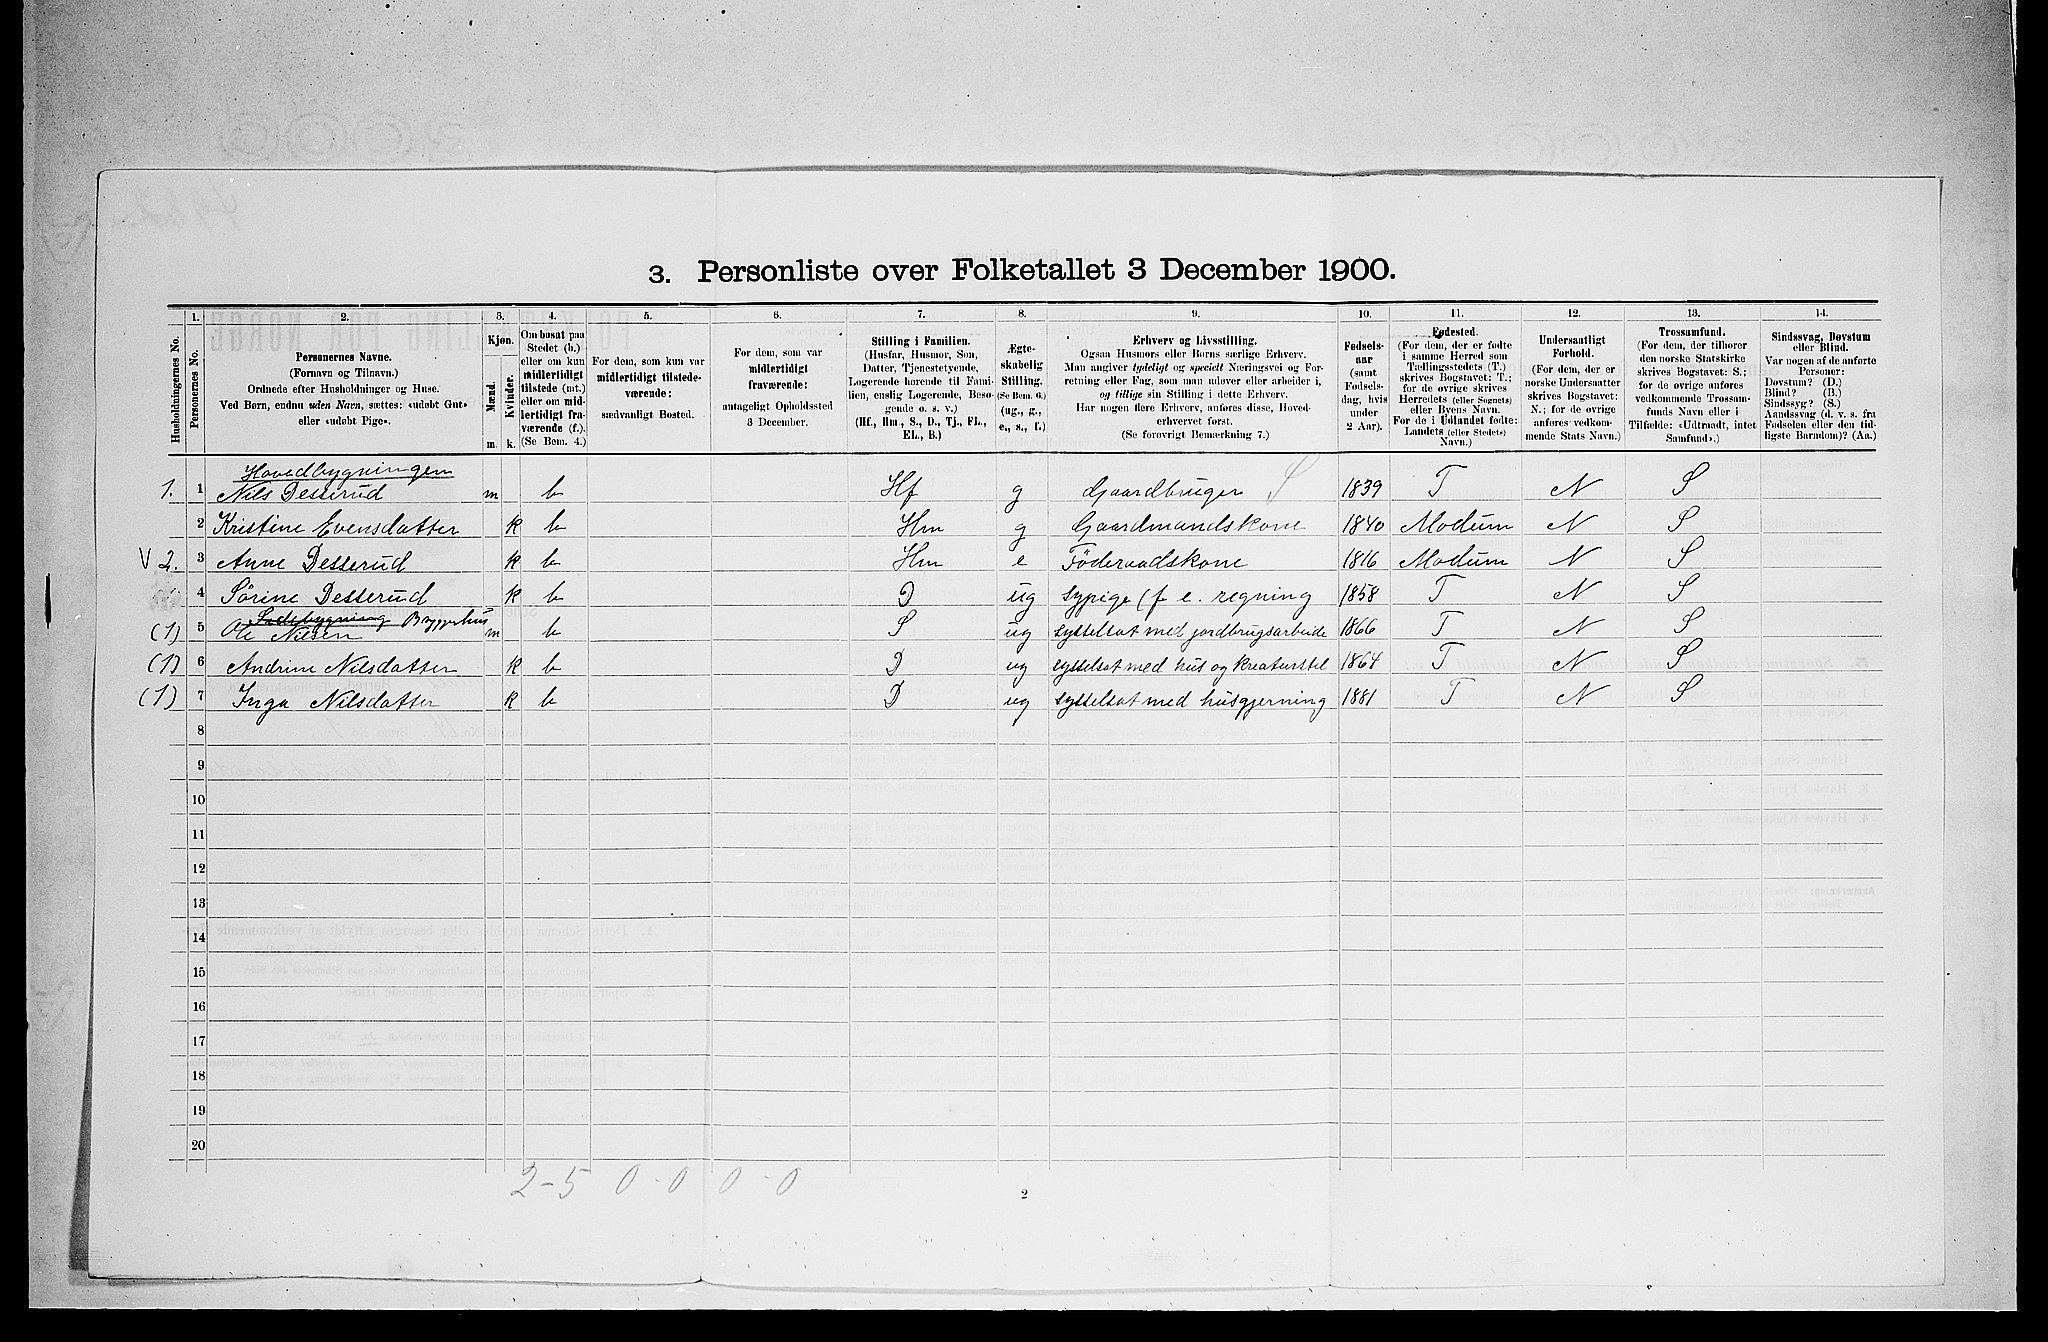 3. Personliste over Folketallet 3 December 1900.
Husholdningernes No.
1.
Personernes No.
2.
Personernes Navne.
(Fornavn og Tilnavn.)
Ordnede efter Husholdninger og Huse.
Ved Børn, endnu uden Navn, sættes: «udøbt Gut»
eller «udøbt Pige».
3.
Kjøn.
Mænd.
Kvinder.
m. k.
4.
Om bosat paa
Stedet (b.)
eller om kun
midlertidigt
tilstede (mt.)
eller om mid-
lertidigt fra-
værende (f.).
(Se Bem. 4.)
5.
For dem, som kun var
midlertidigt tilstede-
værende:
sædvanligt Bosted.
6.
For dem, som var
midlertidigt
fraværende:
antageligt Opholdssted
3 December.
7.
Stilling i Familien.
(Husfar, Husmor, Søn,
Datter, Tjenestetyende,
Logerende hørende til Fami-
lien, enslig Logerende, Besø-
gende o. s. v.)
(Hf., Hm., S., D., Tj., FL.,
EL., B.)
8.
Ægte-
skabelig
Stilling.
(Se Bem. 6.)
(ug., g.,
e., s., f.)
9.
Erhverv og Livsstilling.
Ogsaa Husmors eller Børns særlige Erhverv.
Man angiver tydeligt og specielt Næringsvei og For-
retning eller Fag, som man udøver eller arbeider i,
og tillige sin Stilling i dette Erhverv.
Har nogen flere Erhverv, anføres disse, Hoved-
erhvervet først.
(Se forøvrigt Bemærkning 7.)
10.
Fødsels-
aar
(samt
Fødsels-
dag, hvis
under
2 Aar).
11.
Fødested.
(For dem, der er fødte
i samme Herred som
Tællingsstedets (T.)
skrives Bogstavet: T.;
for de øvrige skrives
Herredets (eller Sognets)
eller Byens Navn.
For de i Udlandet fødte:
Landets (eller Stedets)
Navn.)
12.
Undersaatligt
Forhold.
(For dem, der er
norske Undersaatter
skrives Bogstavet:
N.; for de øvrige
anføres vedkom-
mende Stats Navn.)
13.
Trossamfund.
(For dem, der tilhører
den norske Statskirke
skrives Bogstavet: S.;
for de øvrige anføres
vedkommende Trossam-
funds Navn eller i
Tilfælde: «Udtraadt, intet
Samfund».)
14.
Sindssvag, Døvstum
eller Blind.
Var nogen af de anførte
Personer:
Døvstum? (D.)
Blind? (B.)
Sindssyg? (S.)
Aandssvag (d. v. s. fra
Fødselen eller den tid-
ligste Barndom)? (Aa.)
Hovedbygningen
1. 1 Nils Desserud m b Hf g Gaardbruger S 1839 T N S
2 Kristine Evensdatter k b Hm g Gaardmandskone 1840 Modum N S
V 2. 3 Anne Desserud k b Hm e Föderaadskone 1816 Modum N S
4 Sörine Desserud k b D ug sypige (f e. regning 1858 T N S
Sidebygning Bryggerhus
(1) 5 Ole Nilsen m b S ug sysselsat med jordbrugsarbeide 1866 T N S
(1) 6 Andrine Nilsdatter k b D ug sysselsat med hus og kreaturstel 1864 T N S
(1) 7 Inga Nilsdatter k b D ug sysselsat med husgjerning 1881 T N S
8
9
10
11
12
13
14
15
16
17
18
19
20
2-5 0-0 0-0
2